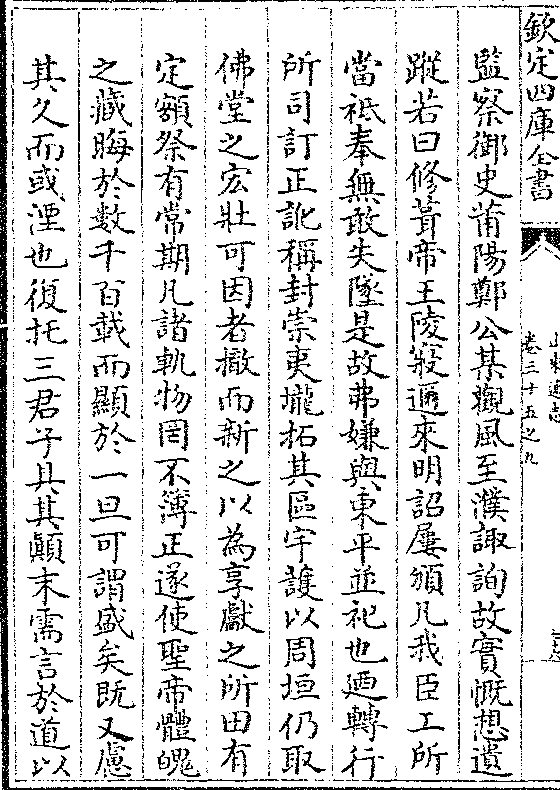 欽定四庫全書
卷三十五之九
監察御史莆陽鄭公某觀風至濮諏詢故實慨想遺
蹤若曰修葺帝王陵寢邇來明詔屢頒凡我臣工所
當祗奉無敢失墜是故弗嫌與東平並祀也廼轉行
所司訂正訛稱封崇夷壠拓其區宇護以周垣仍取
佛堂之宏壯可因者撤而新之以為享獻之所田有
定額祭有常期凡諸軌物罔不簿正遂使聖帝體魄
之藏晦於數千百載而顯於一旦可謂盛矣既又慮
其久而或湮也復托三君子具其顛末需言於道以